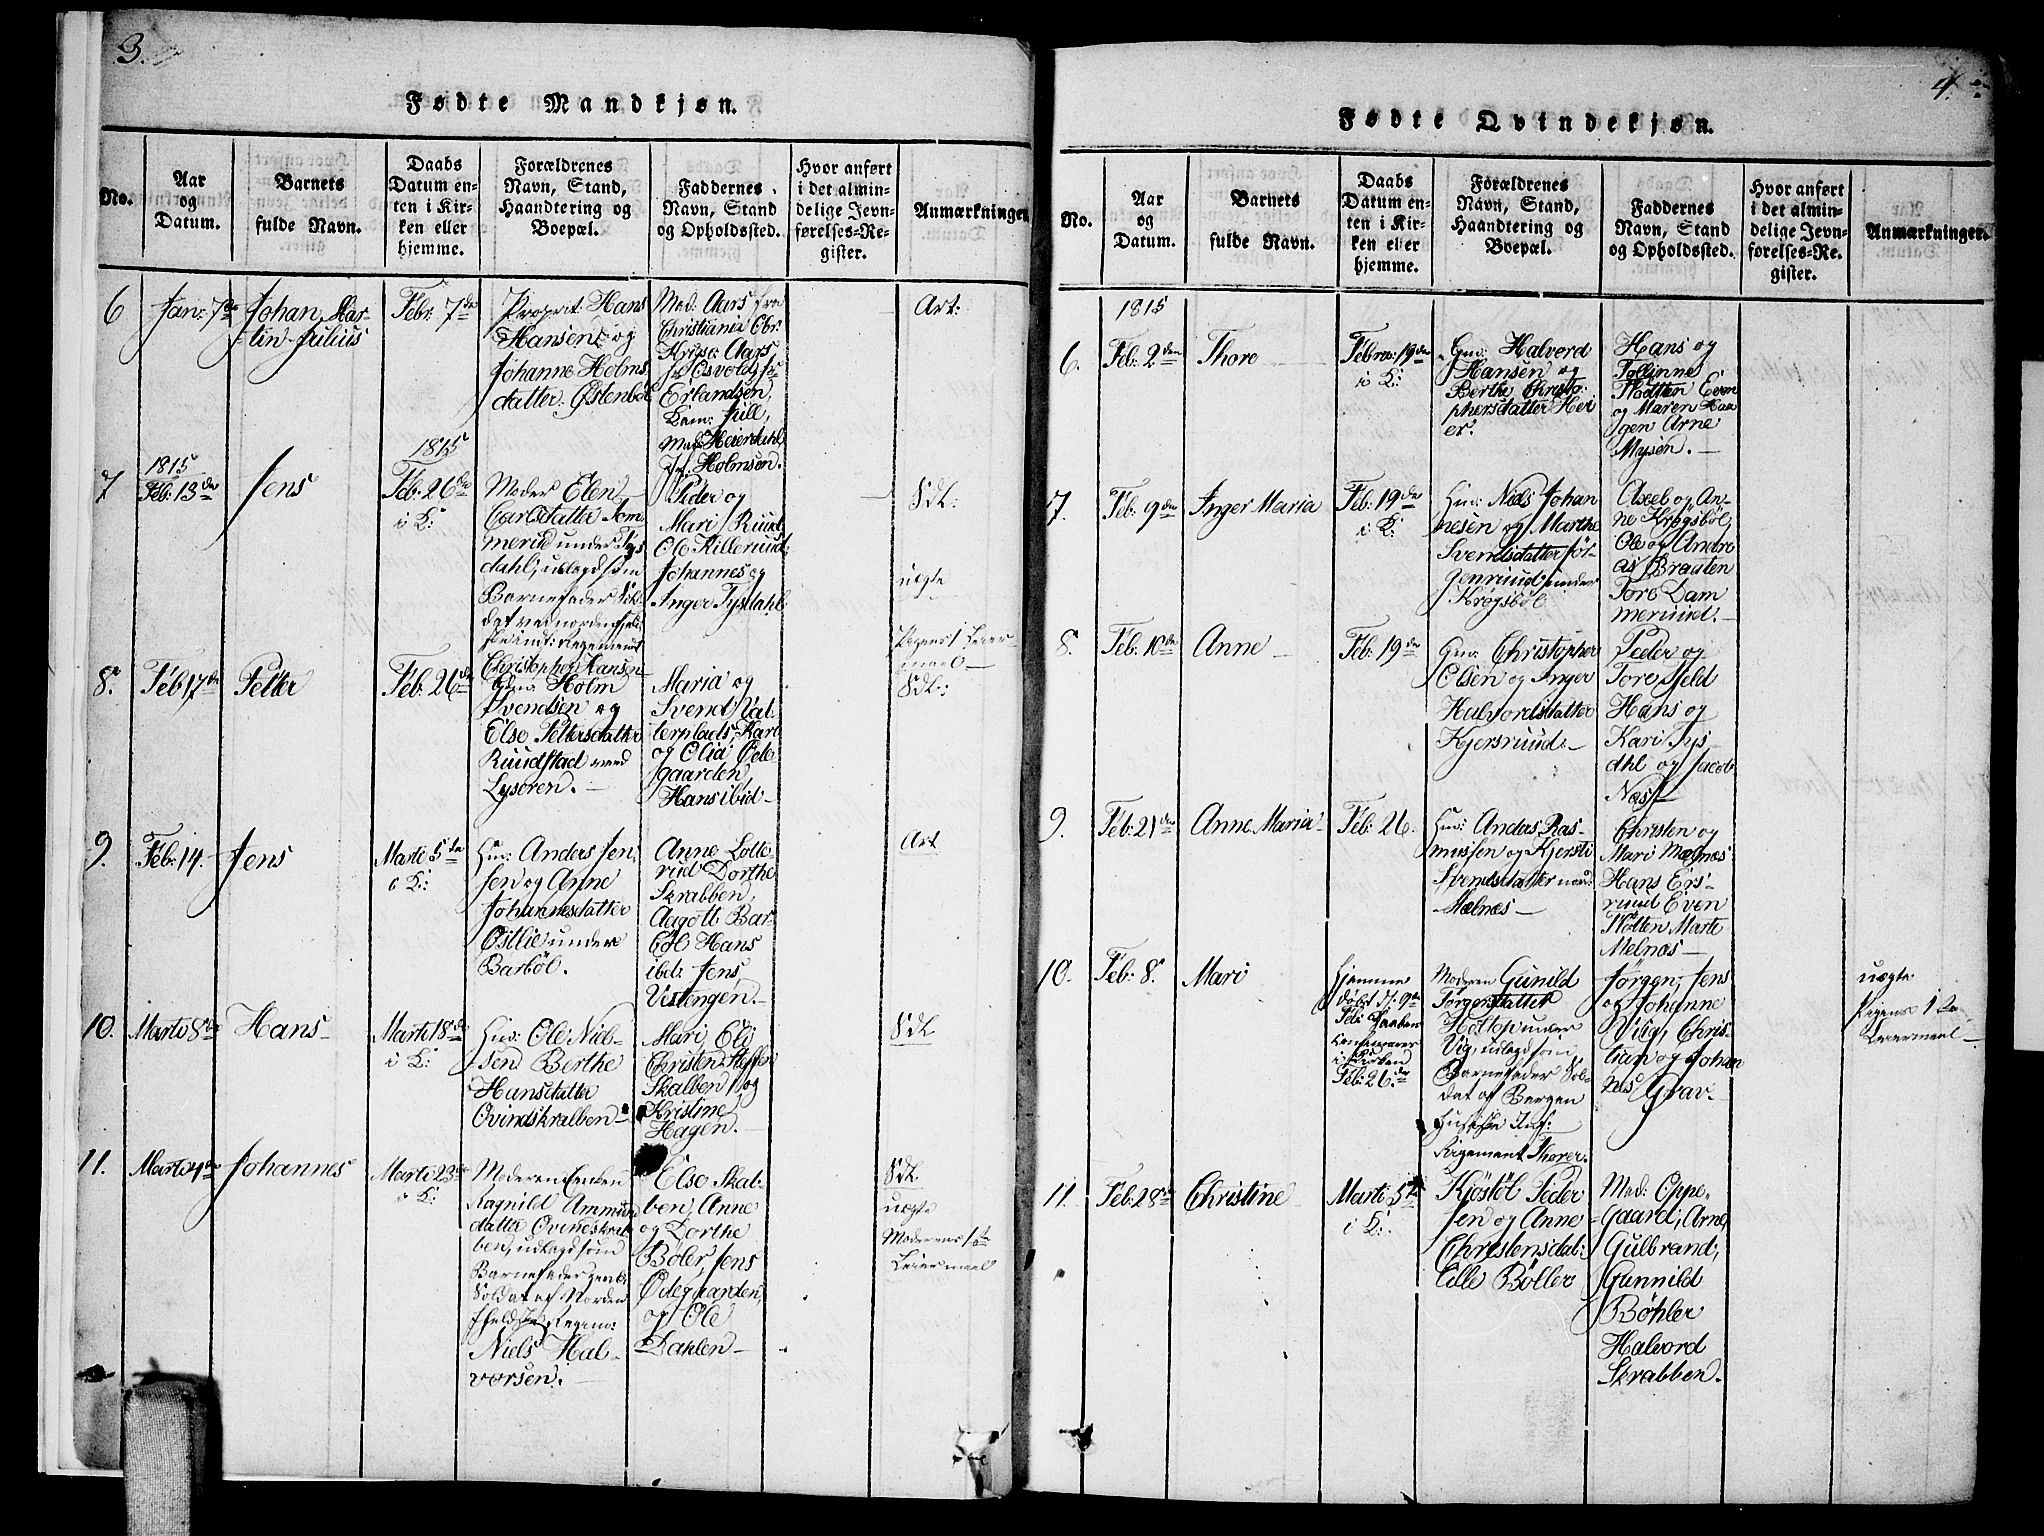 3.
Fødte Mandkjøn.
No.
Aar
og
Datum.
Barnets
fulde Navn.
Daabs
Datum en-
ten i Kir-
ken eller
hjemme.
Forældrenes
Navn, Stand,
Haandtering og
Boepæl.
Faddernes
Navn, Stand
og Opholdssted.
Hvor anført
i det almin-
delige Jevn-
førelses-Re-
gister.
Anmærkninger
6
Jan: 7de
Johan Mar-
tin Julius
Febr: 7de
Proprit: Hans
Hansen og
Johanne Holms
datter Østenböl
Mad: Aars fra
Christiania Obr:
Krigsc: Aars
Jr Osvold Jr
Erlandsen,
Cam: Jull,
Mad: Heierdahl
Jr: Holmsen.
Art:
7
1815
Feb: 13de
Jens
1815
Feb: 26de
i K:
Moder Elen
Carlsdatter Som
merud under Tys
dahl, udlagd som
Barnefader Sol-
dat ved nordenfjel
Christopher Hansen
Peder og
Mari Ruud
Ole Killerud
Johannes og
Inger Tysdahl
Sdl:
uegte
Pigens 1 Leier
maal
8.
Feb 17de
Petter
Feb: 26de
Gm: Holm
Svendsen og
Else Pettersdatter
Ruudstad ved
Lyseren.
Maria og
Svend Val
terplads, Kari
og Olia Öde
gaarden
Hans ibid
Sdl:
9.
Feb: 14.
Jens
Marti 5de
i K:
Hm: Anders Jen
sen og Anne
Johannesdatter
Ostlie under
Barböl.
Anne Lotte-
rud Dorthe
Skrabben,
Aagott Bar-
böl Hans
ibd: Jens
Vestengen.
Art
10.
Marti 8de
Hans
Marti 18de
i K:
Hm: Ole Niel-
sen Berthe
Hansdatter
Ovindskralben
Mari, Eli
Christen Steffen
Skalben og
Kristine
Hagen.
Sdl
11.
Marti 4de
Johannes
Marti 23de
i K:
Moderen Enken
Ragnild Ammun
datter Ovindskral
ben, udlagd som
Barnefader
Soldat af Norden
fjeldske Regim:
Niels Hal-
vorsen.
Else Skal-
ben, Anne
og Dorthe
Böler, Jens
Ödegaarden,
og Ole
Dahlen
Sdl
uegte
Moderens 1ste
Leiermaal
4.
Fødte Qvindekjøn.
No.
Aar
og
Datum.
Barnets
fulde Navn.
Daabs
Datum en-
ten i Kir-
ken eller
hjemme.
Forældrenes
Navn, Stand,
Haandtering og
Boepæl.
Faddernes
Navn, Stand
og Opholdssted.
Hvor anført
i det almin-
delige Jevn-
førelses-Re-
gister.
Anmærkninger.
1815
6.
Feb: 2den
Thore
Febru: 19de
i K:
Gm: Halvord
Hansen og
Berthe Christo
phersdatter Hei
er.
Hans og
Tollinne
Holtten Even
og Maren Haa
gen Arne
Mysen.
7.
Feb: 9de
Inger Maria
Feb: 19de
i K:
Hm: Niels Johan
nesen og Marthe
Svendsdatter Jör-
genruud under
Krogsböl
Axel og An-
ne Krogsböl,
Ole og Andre
as Braaten
Tore Dam
merud.
8.
Feb: 10de
Anne
Feb: 19de
Gm: Christopher
Olsen og Inger
Halvordsdatter
Kjersruud
Peder og
Tore Held
Hans og
Kari Tys
dhl og Jacob
Næss
9.
Feb: 21de
Anne Maria
Feb: 26.
Hm: Andas Ras-
mussen og Kjersti
Svendsdatter
Mælnæs
Christen og
Mari Mælnæs
Hans Ers-
ruud Even
Holten Marte
Melnæs
10.
Feb: 8.
Mari
Hjemme
döbt d: 9de
Feb: Daaben
i Kirken
Feb: 26de
Moderen Gunild
Jörgensdatter
Holtop under
Vig, udlagd som
Barnefader Sol-
dat af Bergen
husiske Inf:
Regement Thorer
Jörgen, Jens
og Johanne
Viig, Chris-
tian og Johan
nes Grav
uægte
Pigens 1ste
Leiermaal
11.
Feb: 28de
Christine
Marti 5te
i K:
Kjöstöl Peder
sen og Anne
Christensdat:
Lille Böller
Mad: Oppe-
gaard, Arne,
Gulbrand,
Gunnild
Böhler
Halvord
Skrabben.